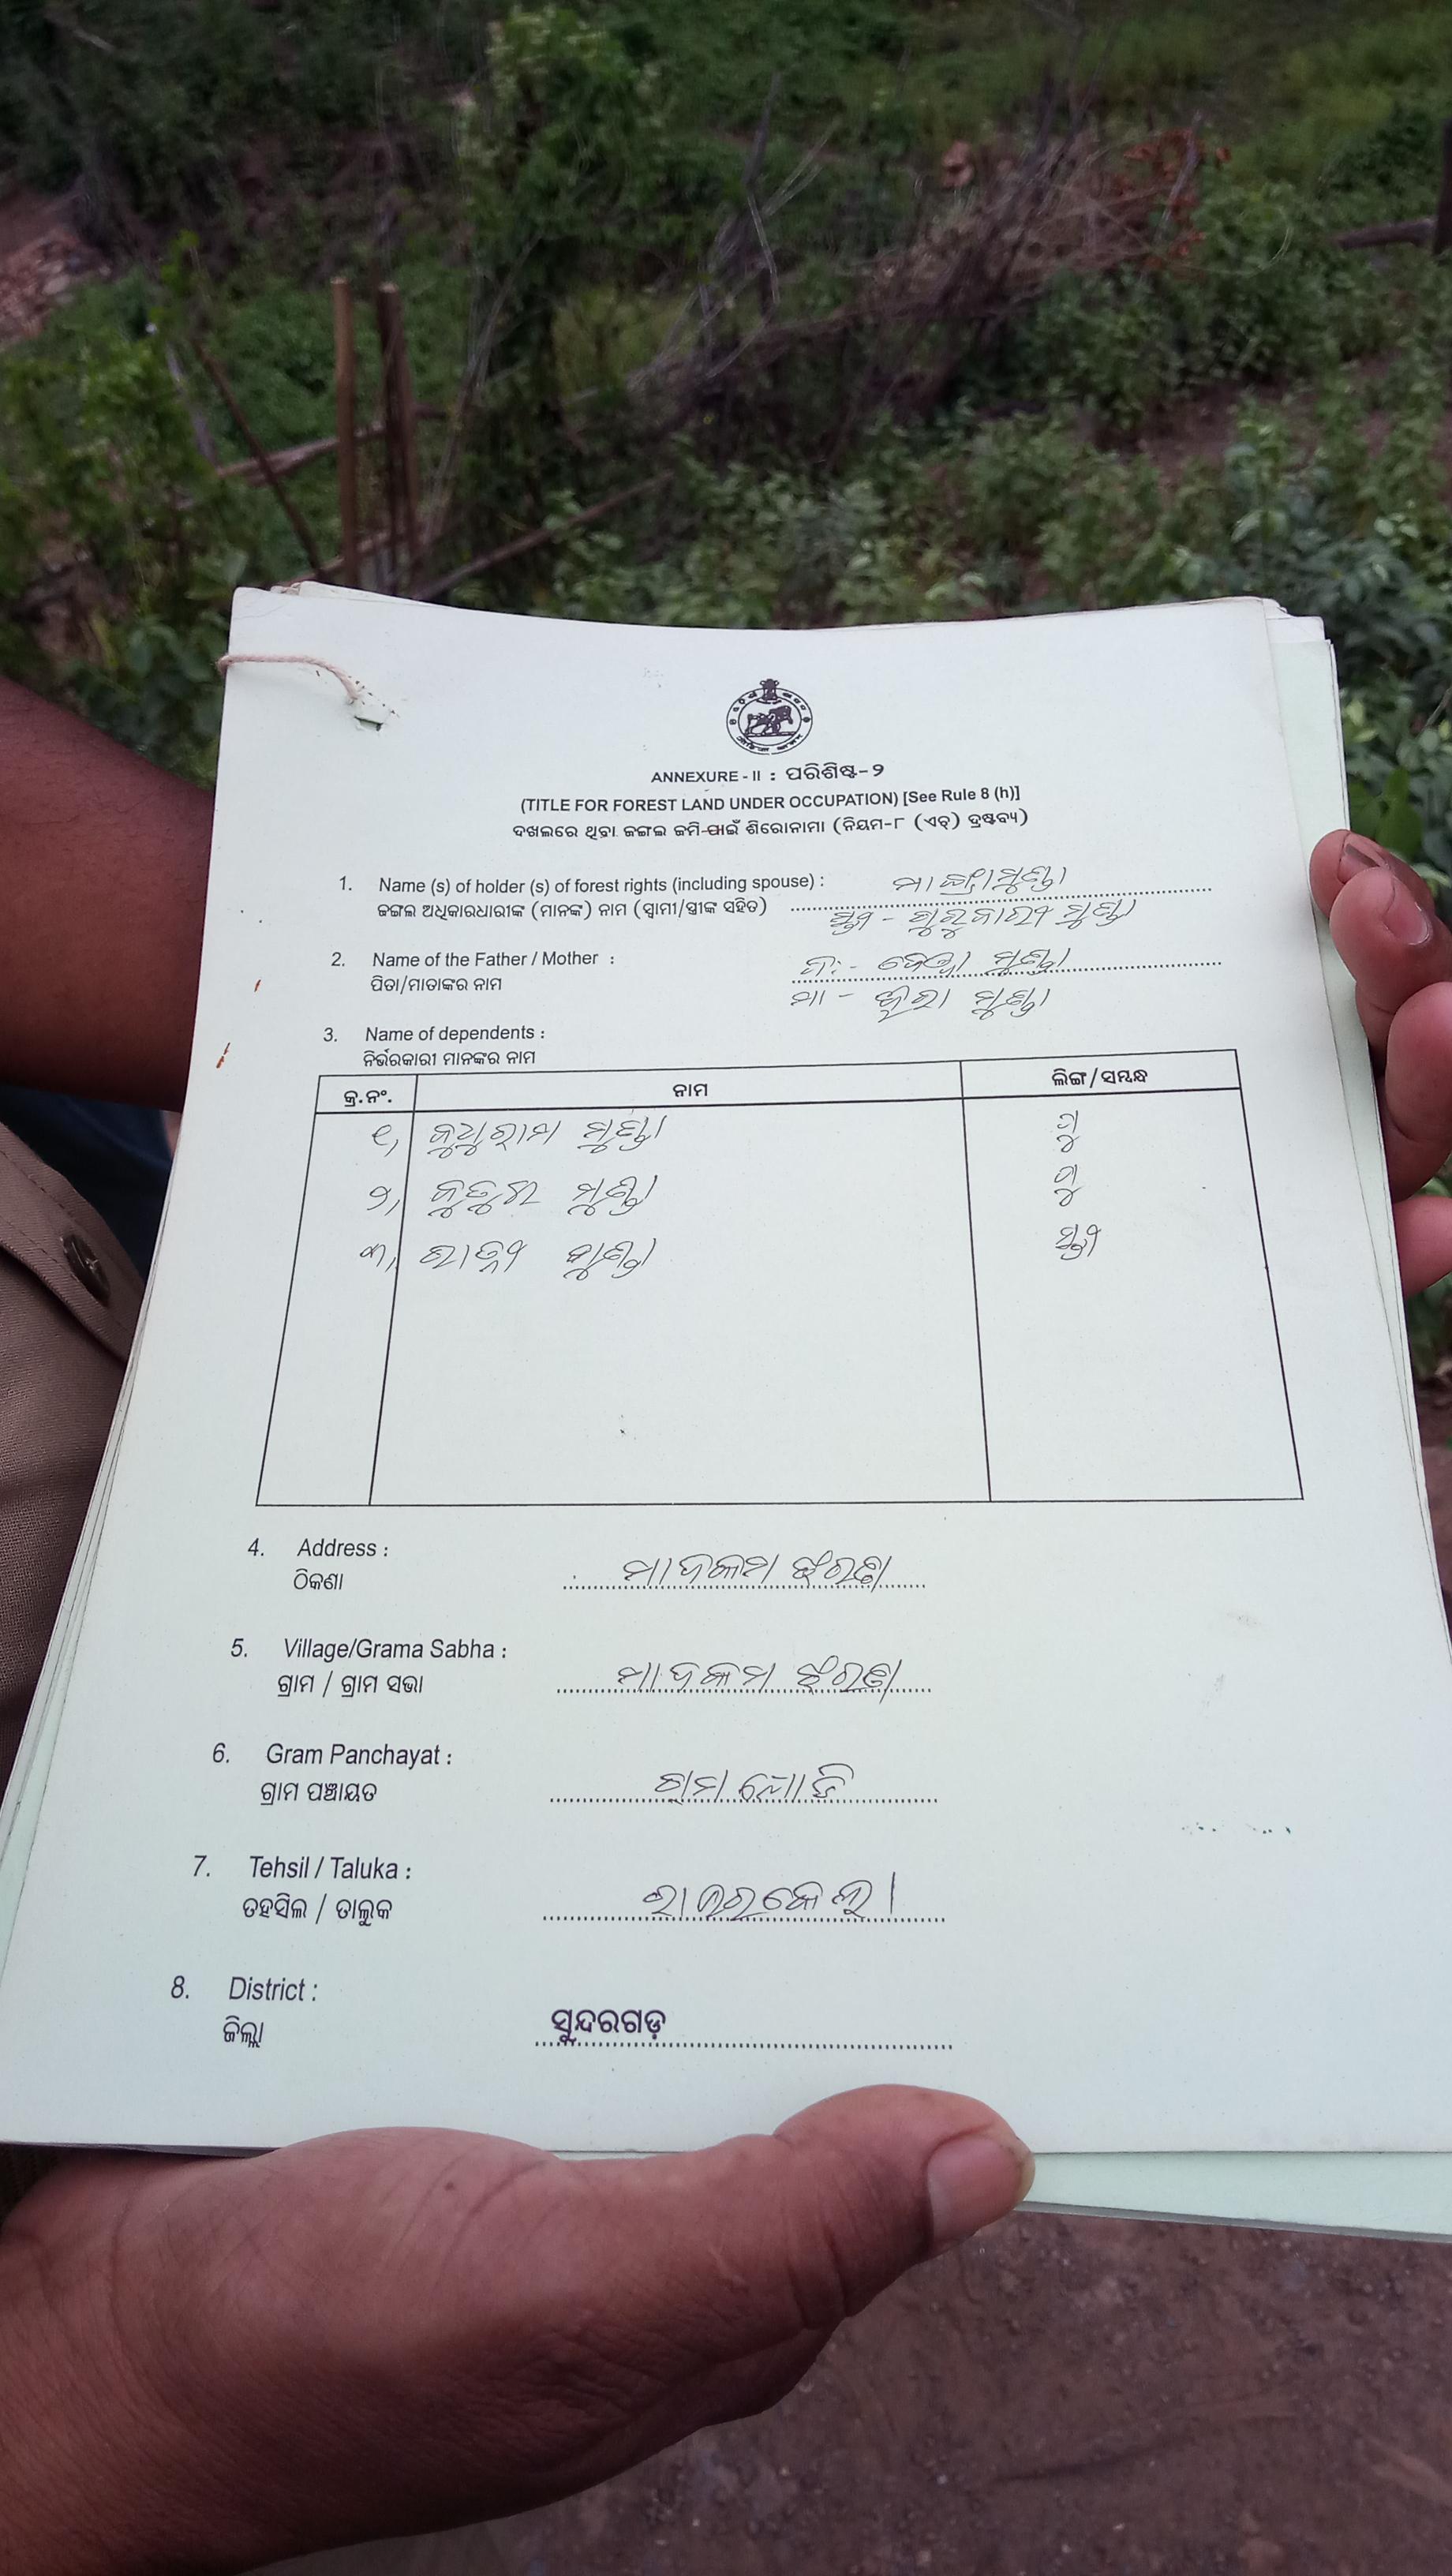 ANNEXURE - II : ପରିଶିଷ୍ଟ-୨
(TITLE FOR FOREST LAND UNDER OCCUPATION) [See Rule 8 (h)]
ଦଖଲରେ ଥିବା ଜଙ୍ଗଲ ଜମି ପାଇଁ ଶିରୋନାମା (ନିୟମ-୮ (ଏଚ୍) ଦ୍ରଷ୍ଟବ୍ୟ)
1. Name (s) of holder (s) of forest rights (including spouse) :
ଜଙ୍ଗଲ ଅଧିକାରଧାରୀଙ୍କ (ମାନଙ୍କ) ନାମ (ସ୍ୱାମୀ/ସ୍ତ୍ରୀଙ୍କ ସହିତ) ମୁଣ୍ଡା
ସ୍ତ୍ରୀ - ଗୁରୁବାରୀ ମୁଣ୍ଡା
2. Name of the Father / Mother :
ପିତା/ମାତାଙ୍କର ନାମ ମୁଣ୍ଡା
ମା - ହୀରା ମୁଣ୍ଡା
3. Name of dependents :
ନିର୍ଭରକାରୀ ମାନଙ୍କର ନାମ
କ୍ର.ନଂ. ନାମ ଲିଙ୍ଗ/ସମ୍ବନ୍ଧ
୧, ବୁଧୁରାମ ମୁଣ୍ଡା ପୁ
୨, ମୁଣ୍ଡା ପୁ
୩, ମୁଣ୍ଡା ସ୍ତ୍ରୀ
4. Address :
ଠିକଣା ମାଦକମ ଝରଣ
5. Village/Grama Sabha :
ଗ୍ରାମ / ଗ୍ରାମ ସଭା ମାଦକମ ଝରଣ
6. Gram Panchayat :
ଗ୍ରାମ ପଞ୍ଚାୟତ
7. Tehsil / Taluka :
ତହସିଲ / ତାଲୁକ ରାଉରକେଲା
8. District :
ଜିଲ୍ଲା ସୁନ୍ଦରଗଡ଼